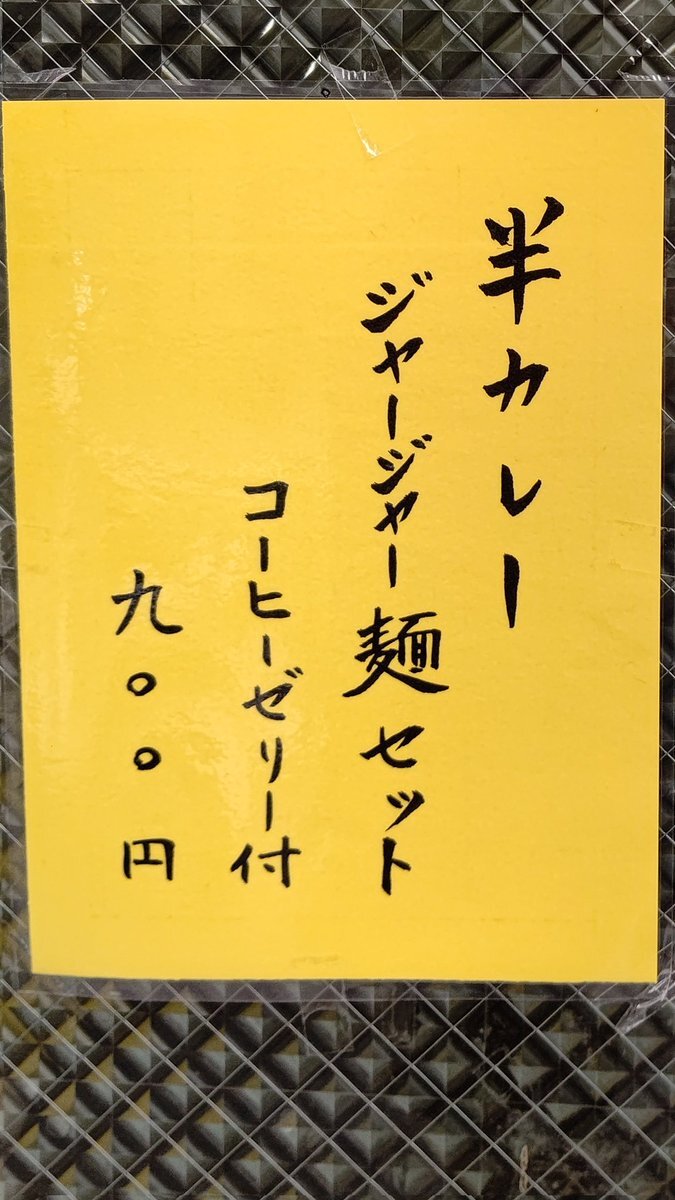 半カレー
ジャージャー麺セット
コーヒーゼリー付
九〇〇円